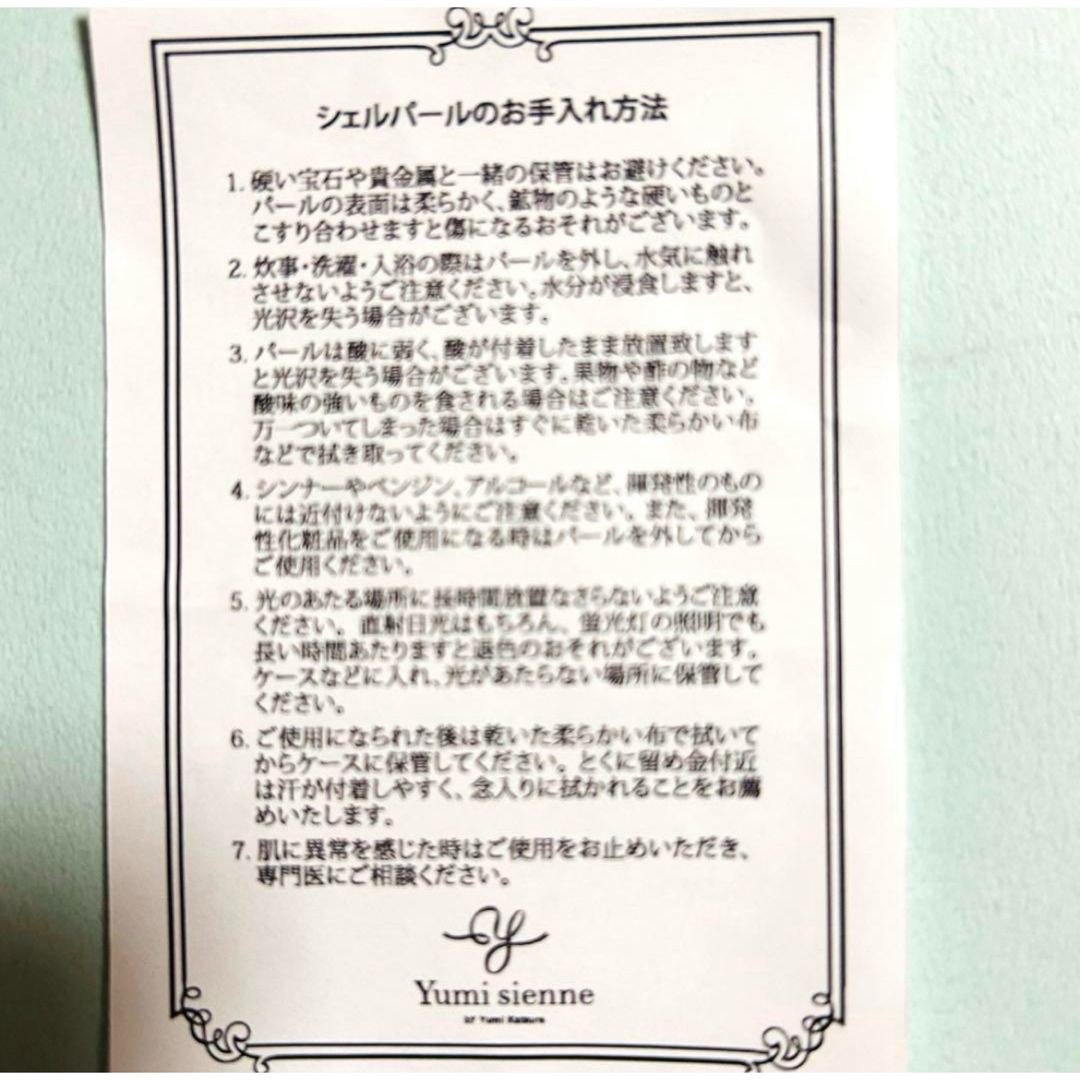 シェルパールのお手入れ方法
1. 硬い宝石や貴金属と一緒の保管はお避けください。
パールの表面は柔らかく、鉱物のような硬いものと
こすり合わせますと傷になるおそれがございます。
2. 炊事・洗濯・入浴の際はパールを外し、水気に触れ
させないようご注意ください。水分が浸食しますと、
光沢を失う場合がございます。
3. パールは酸に弱く、酸が付着したまま放置致します
と光沢を失う場合がございます。果物や酢の物など
酸味の強いものを食される場合はご注意ください。
万一ついてしまった場合はすぐに乾いた柔らかい布
などで拭き取ってください。
4. シンナーやベンジン、アルコールなど、揮発性のもの
には近付けないようにご注意ください。また、揮発
性化粧品をご使用になる時はパールを外してから
ご使用ください。
5. 光のあたる場所に長時間放置なさらないようご注意
ください。直射日光はもちろん、蛍光灯の照明でも
長い時間あたりますと退色のおそれがございます。
ケースなどに入れ、光があたらない場所に保管して
ください。
6. ご使用になられた後は乾いた柔らかい布で拭いて
からケースに保管してください。とくに留め金付近
は汗が付着しやすく、念入りに拭かれることをお薦
めいたします。
7. 肌に異常を感じた時はご使用をお止めいただき、
専門医にご相談ください。
Y
Yumi sienne
by Yumi Katsura